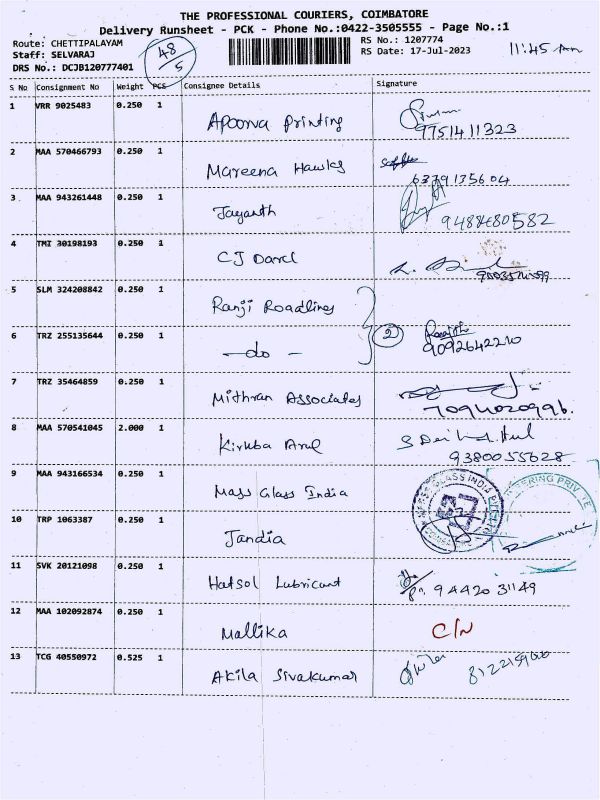 THE PROFESSIONAL COURIERS, COIMBATORE
Delivery Runsheet - PCK - Phone No.:0422-3505555 - Page No.:1
Route: CHETTIPALAYAM
Staff: SELVARAJ
DRS No.: DCJB120777401
48/5
RS No.: 1207774
RS Date: 17-Jul-2023
11:45 Am
S No Consignment No Weight PCS Consignee Details Signature
1 VRR 9025483 0.250 1 Apoorva printing 9751411323
2 MAA 570466793 0.250 1 Mareena Hawks 6379135604
3 MAA 943261448 0.250 1 Jayanth 9488480582
4 TMI 30198193 0.250 1 CJ Darcl
5 SLM 324208842 0.250 1 Ranji Roadlines
6 TRZ 255135644 0.250 1 —do — 2 Ranjith 9092642210
7 TRZ 35464859 0.250 1 Mithran Associates 7094020996.
8 MAA 570541045 2.000 1 Kirуba Arul 9380055628
9 MAA 943166534 0.250 1 Mass Glass India
10 TRP 1063387 0.250 1 Jandia
11 SVK 20121098 0.250 1 Hatsol Lubricant 94420 31149
12 MAA 102092874 0.250 1 Mallika C/N
13 TCG 40550972 0.525 1 Akila Sivakumar